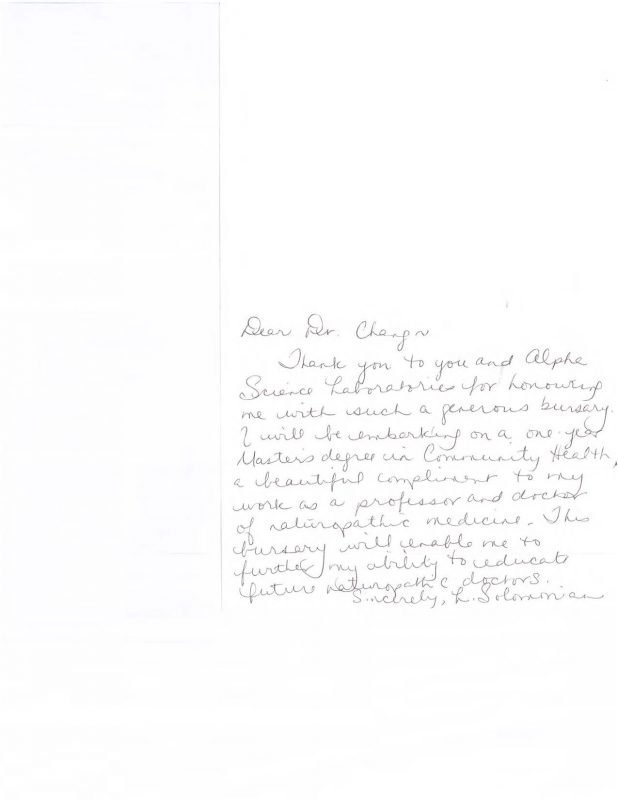 Dear Dr. Chang
Thank you to you and Alpha
Science Laboratories for honouring
me with such a generous bursary.
I will be embarking on a one-year
Master's degree in Community Health,
a beautiful compliment to my
work as a professor and doctor
of naturopathic medicine. This
bursery will enable me to
further my ability to educate
future Naturopathic doctors.
Sincerely, L. Solomonian